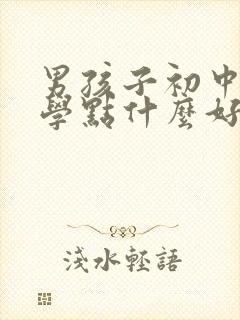 男孩子初中
學點什麼好
淺水輕語